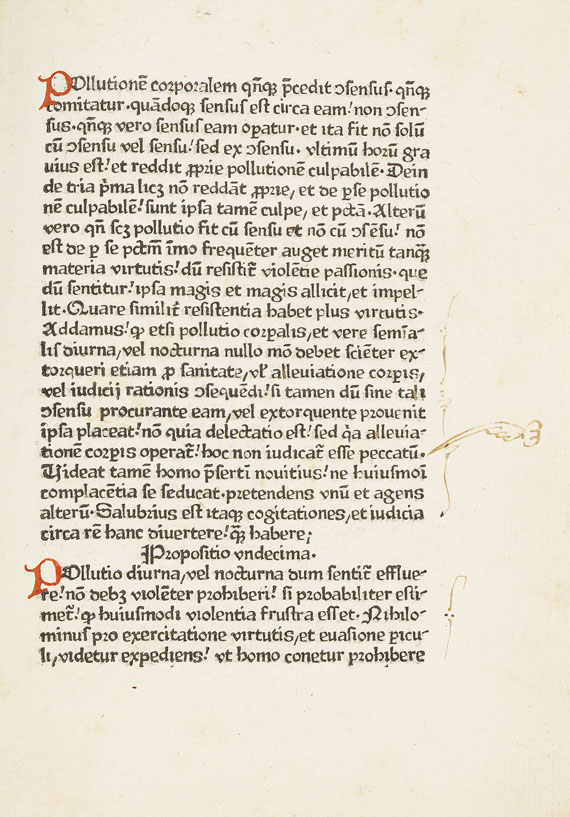 POllutionē corporalem qn̄qꝫ p̄cedit ↄsensus· qn̄qꝫ
comitatur·quādoqꝫ sensus est circa eam!non ↄsen-
sus·qn̄qꝫ vero sensus eam opatur·et ita fit nō solū
cū ↄsensu vel sensu!sed ex ↄsensu· vltimū horū gra
uius est!et reddit ꝓprie pollutionē culpabilē·Dein
de tria p̄ma licꝫ nō reddāt ꝓprie, et de ꝑse pollutio
nē culpabilē!sunt ipsa tamē culpe, et pctā·Alterū
vero qn̄ scꝫ pollutio fit cū sensu et nō cū ↄsēsu! nō
est de ꝑ se pctm̄ īmo frequēter auget meritū tanqꝫ̄
materia virtutis!dū resistit̄ violētie passionis·que
dū sentitur!ipsa magis et magis allicit,et impel-
lit·Quare similit̄ resistentia habet plus virtutis·
Addamus!ꝙ etsi pollutio corꝑalis,et vere semīa-
lis diurna,vel nocturna nullo mō debet sciēter ex-
torqueri etiam ꝓ sanitate, vl̓ alleuiatione corꝑis,
vel iudicij rationis ↄsequēdi!si tamen dū sine tali
ↄsensu procurante eam,vel extorquente prouenit
ipsa placeat!nō quia delectatio est!sed q̇a alleuia-
tionē corꝑis operat̄!hoc non iudicat̄ esse peccatū·
Uideat tamē homo p̄sertī nouitius!ne huiusmōi
complacētia se seducat·pretendens vnū et agens
alterū·Salubrius est itaqꝫ cogitationes,et iudicia
circa rē hanc diuertere!qꝫ̄ habere;
Propositio vndecima·
POllutio diurna,vel nocturna dum sentit̄ efflue-
re!nō debꝫ violēter prohiberi! si probabiliter esti-
met̄!ꝙ huiusmodi violentia frustra esset·Nihilo-
minus pro exercitatione virtutis,et euasione ꝑicu-
li,videtur expediens! vt homo conetur prohibere